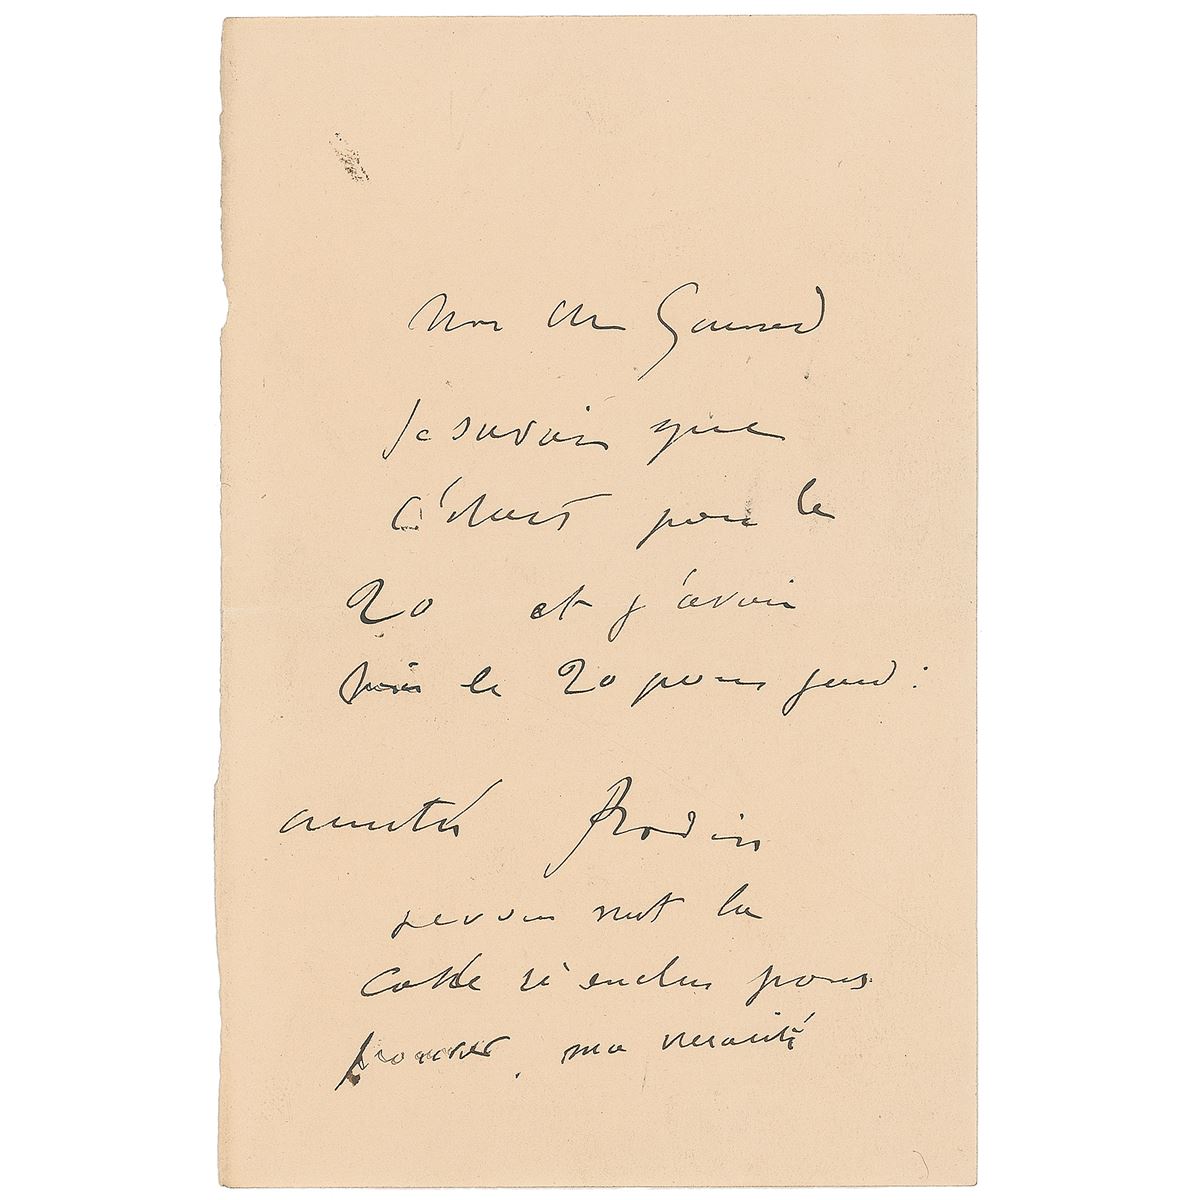 Mon cher
Je savais que
c'était pour le
20 et j'avais
pris le 20 pour jeudi
amitiés Rodin
je vous met la
carte ci enclus pour
prouver ma véracité